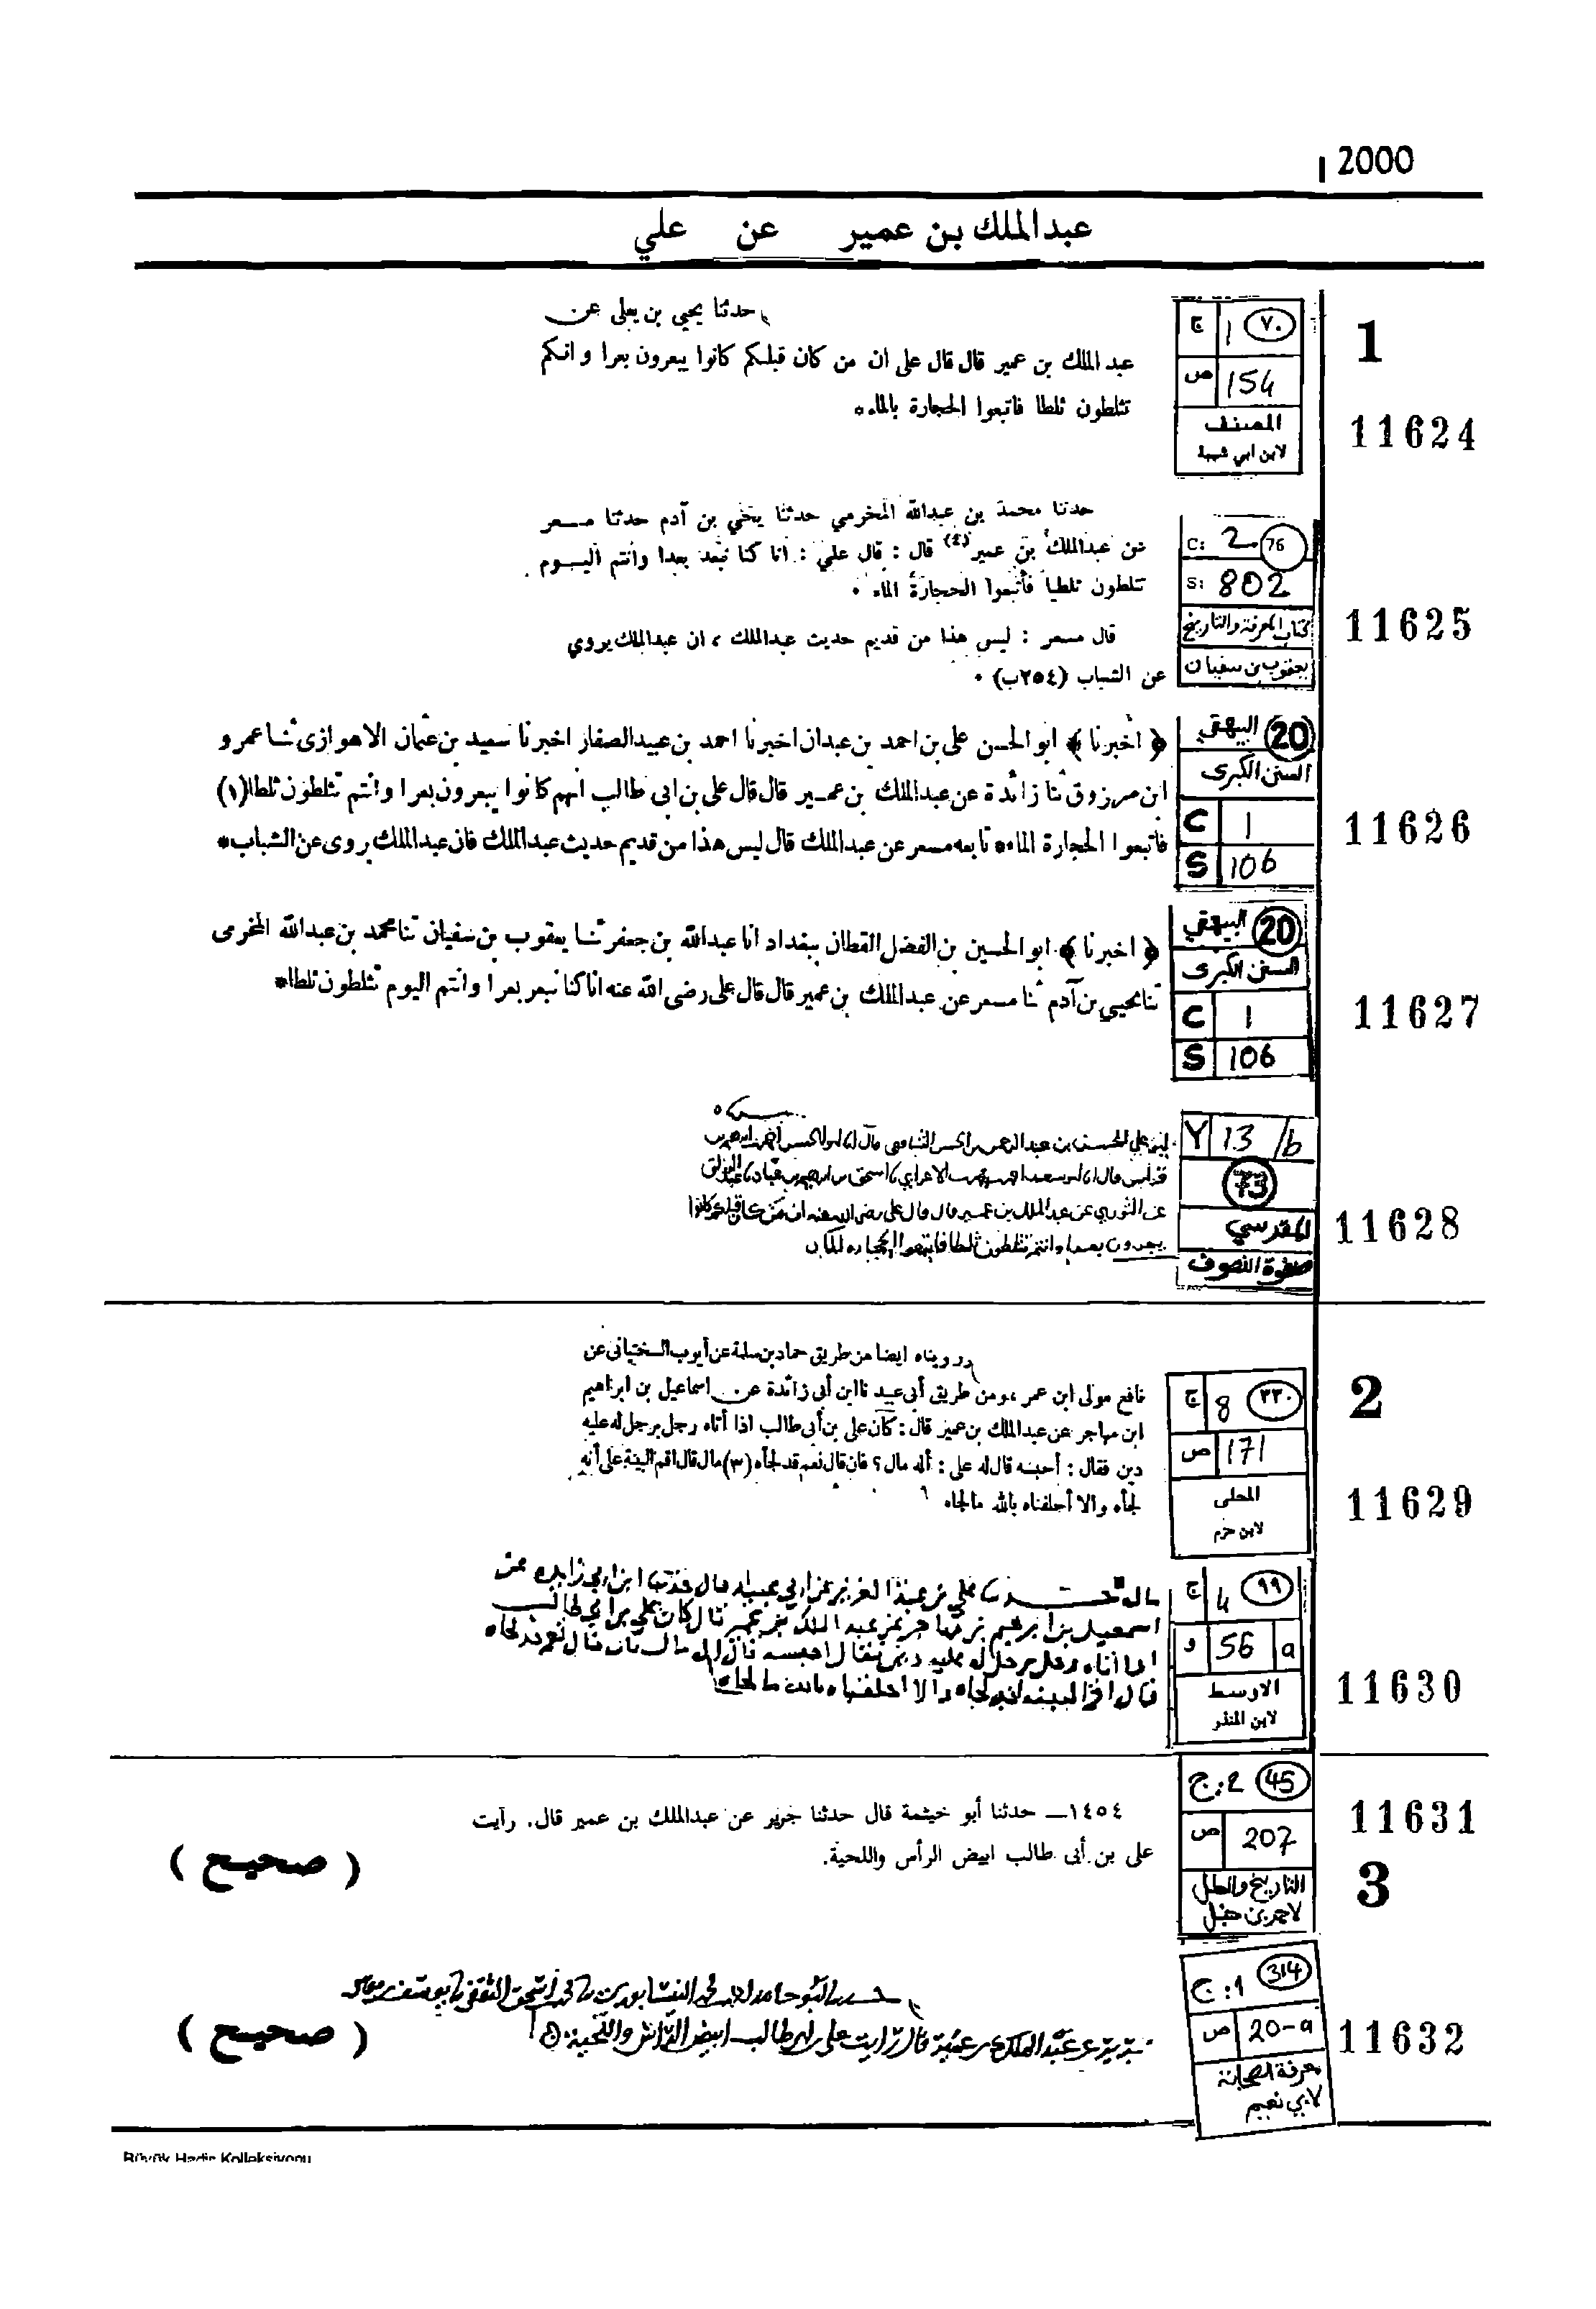 2000
عبدالملك بن عمير عن علي
1
11624
ج 1 ٧٠
ص 154
المصنف
لابن ابي شيبة
حدثنا يحيي بن يعلى عن
عبد الملك بن عمير قال قال على ان من كان قبلكم كانوا يبعرون بعرا وانكم
تثلطون ثلطا فاتبعوا الحجارة بالماء
11625
C: 2 76
S: 802
كتاب المعرفة والتاريخ
يعقوب بن سفيان
حدثنا محمد بن عبدالله المخرمي حدثنا يحي بن آدم حدثنا مسعر
عن عبدالملك بن عمير (٤) قال : قال علي : انا كنا نبعد بعدا وأنتم اليوم
تثلطون ثلطاً فأتبعوا الحجارة الماء
قال مسعر : ليس هذا من قديم حديث عبدالملك ، ان عبدالملك يروي
عن الشباب (٢٥٤ب) .
11626
20 البيهقي
السنن الكبرى
C 1
S 106
﴿ اخبرنا ﴾ ابو الحسن على بن احمد بن عبدان اخبرنا احمد بن عبيد الصفار اخبرنا سعيد بن عثمان الاهوازى ثنا عمرو
ابن مرزوق ثنا زائدة عن عبدالملك بن عمير قال قال على بن ابى طالب انهم كانوا يبعرون بعرا وانتم تثلطون ثلطا(١)
فاتبعوا الحجارة الماء* تابعه مسعر عن عبدالملك قال ليس هذا من قديم حديث عبدالملك فان عبدالملك يروى عن الشباب*
11627
20 البيهقي
السنن الكبرى
C 1
S 106
﴿ اخبرنا ﴾ ابو الحسين بن الفضل القطان ببغداد انا عبدالله بن جعفر ثنا يعقوب بن سفيان ثنا محمد بن عبدالله المخرمى
ثنا يحيى بن آدم ثنا مسعر عن عبدالملك بن عمير قال قال على رضى الله عنه انا كنا نبعر بعرا وانتم اليوم تثلطون ثلطا*
11628
Y 13/b
73
المقدسي
صفوة التصوف
الحسن بن عبد الرحمن بن الحسن الشافعي قال
عن الثوري عن عبد الملك بن عمير قال قال على رضى الله عنه ان من كان قبلكم كانوا
يبعرون بعرا وانتم تثلطون ثلطا فاتبعوا الحجاره الماء
2
11629
ج 8 ٢٣٠
ص 171
المحلى
لابن حزم
ورويناه ايضا من طريق حماد بن سلمة عن أيوب السختيانى عن
نافع مولى ابن عمر ، ومن طريق أبى عبيد نا ابن أبى زائدة عن اسماعيل بن ابراهيم
ابن مهاجر عن عبدالملك بن عمير قال : كان على بن أبى طالب اذا أتاه رجل برجل له عليه
دين فقال : أحبسه قال له على : أله مال ؟ فان قال نعم قد لجأه (٣) مال قال اقم البينة على أنه
لجأه والا أحلفناه بالله ما لجاه
11630
ج 4 ٩٩
و 56 a
الاوسط
لابن المنذر
علي بن عبد العزيز عن ابي عبيد قال حدثنا ابن ابي زايده عن
اسمعيل بن ابرهيم بن مهاجر عن عبد الملك بن عمير قال كان علي بن ابي طالب
اذا اتاه رجل برجل له عليه دين فقال احبسه قال اله مال فان قال نعم قد لجاه
قال اقم البينه انه لجاه والا احلفناه بالله ما لجاه
11631
3
ج: 2 45
ص 207
التاريخ والعلل
لاحمد بن حنبل
١٤٥٤— حدثنا أبو خيثمة قال حدثنا جرير عن عبدالملك بن عمير قال. رأيت
على بن أبى طالب ابيض الرأس واللحية.
( صحيح )
11632
ج: 1 314
ص 20-a
معرفة الصحابة
لابي نعيم
قال رايت على بن ابى طالب ابيض الراس واللحية
( صحيح )
Büyük Hadis Kolleksiyonu